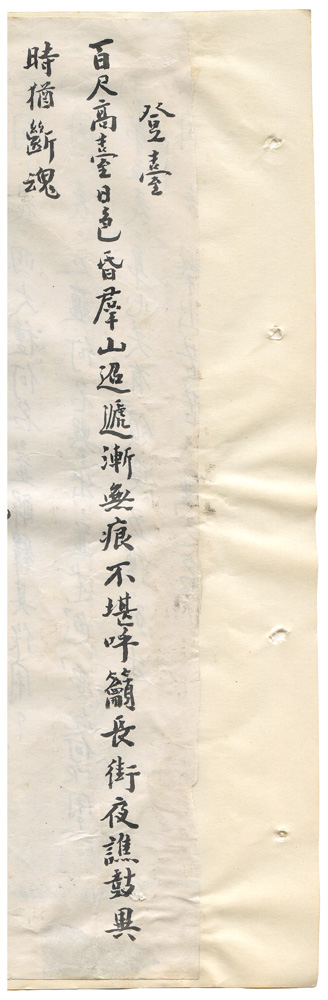 登臺
百尺高臺日色昏羣山迢遞漸無痕不堪呼籲長街夜譙鼓異
時猶斷魂